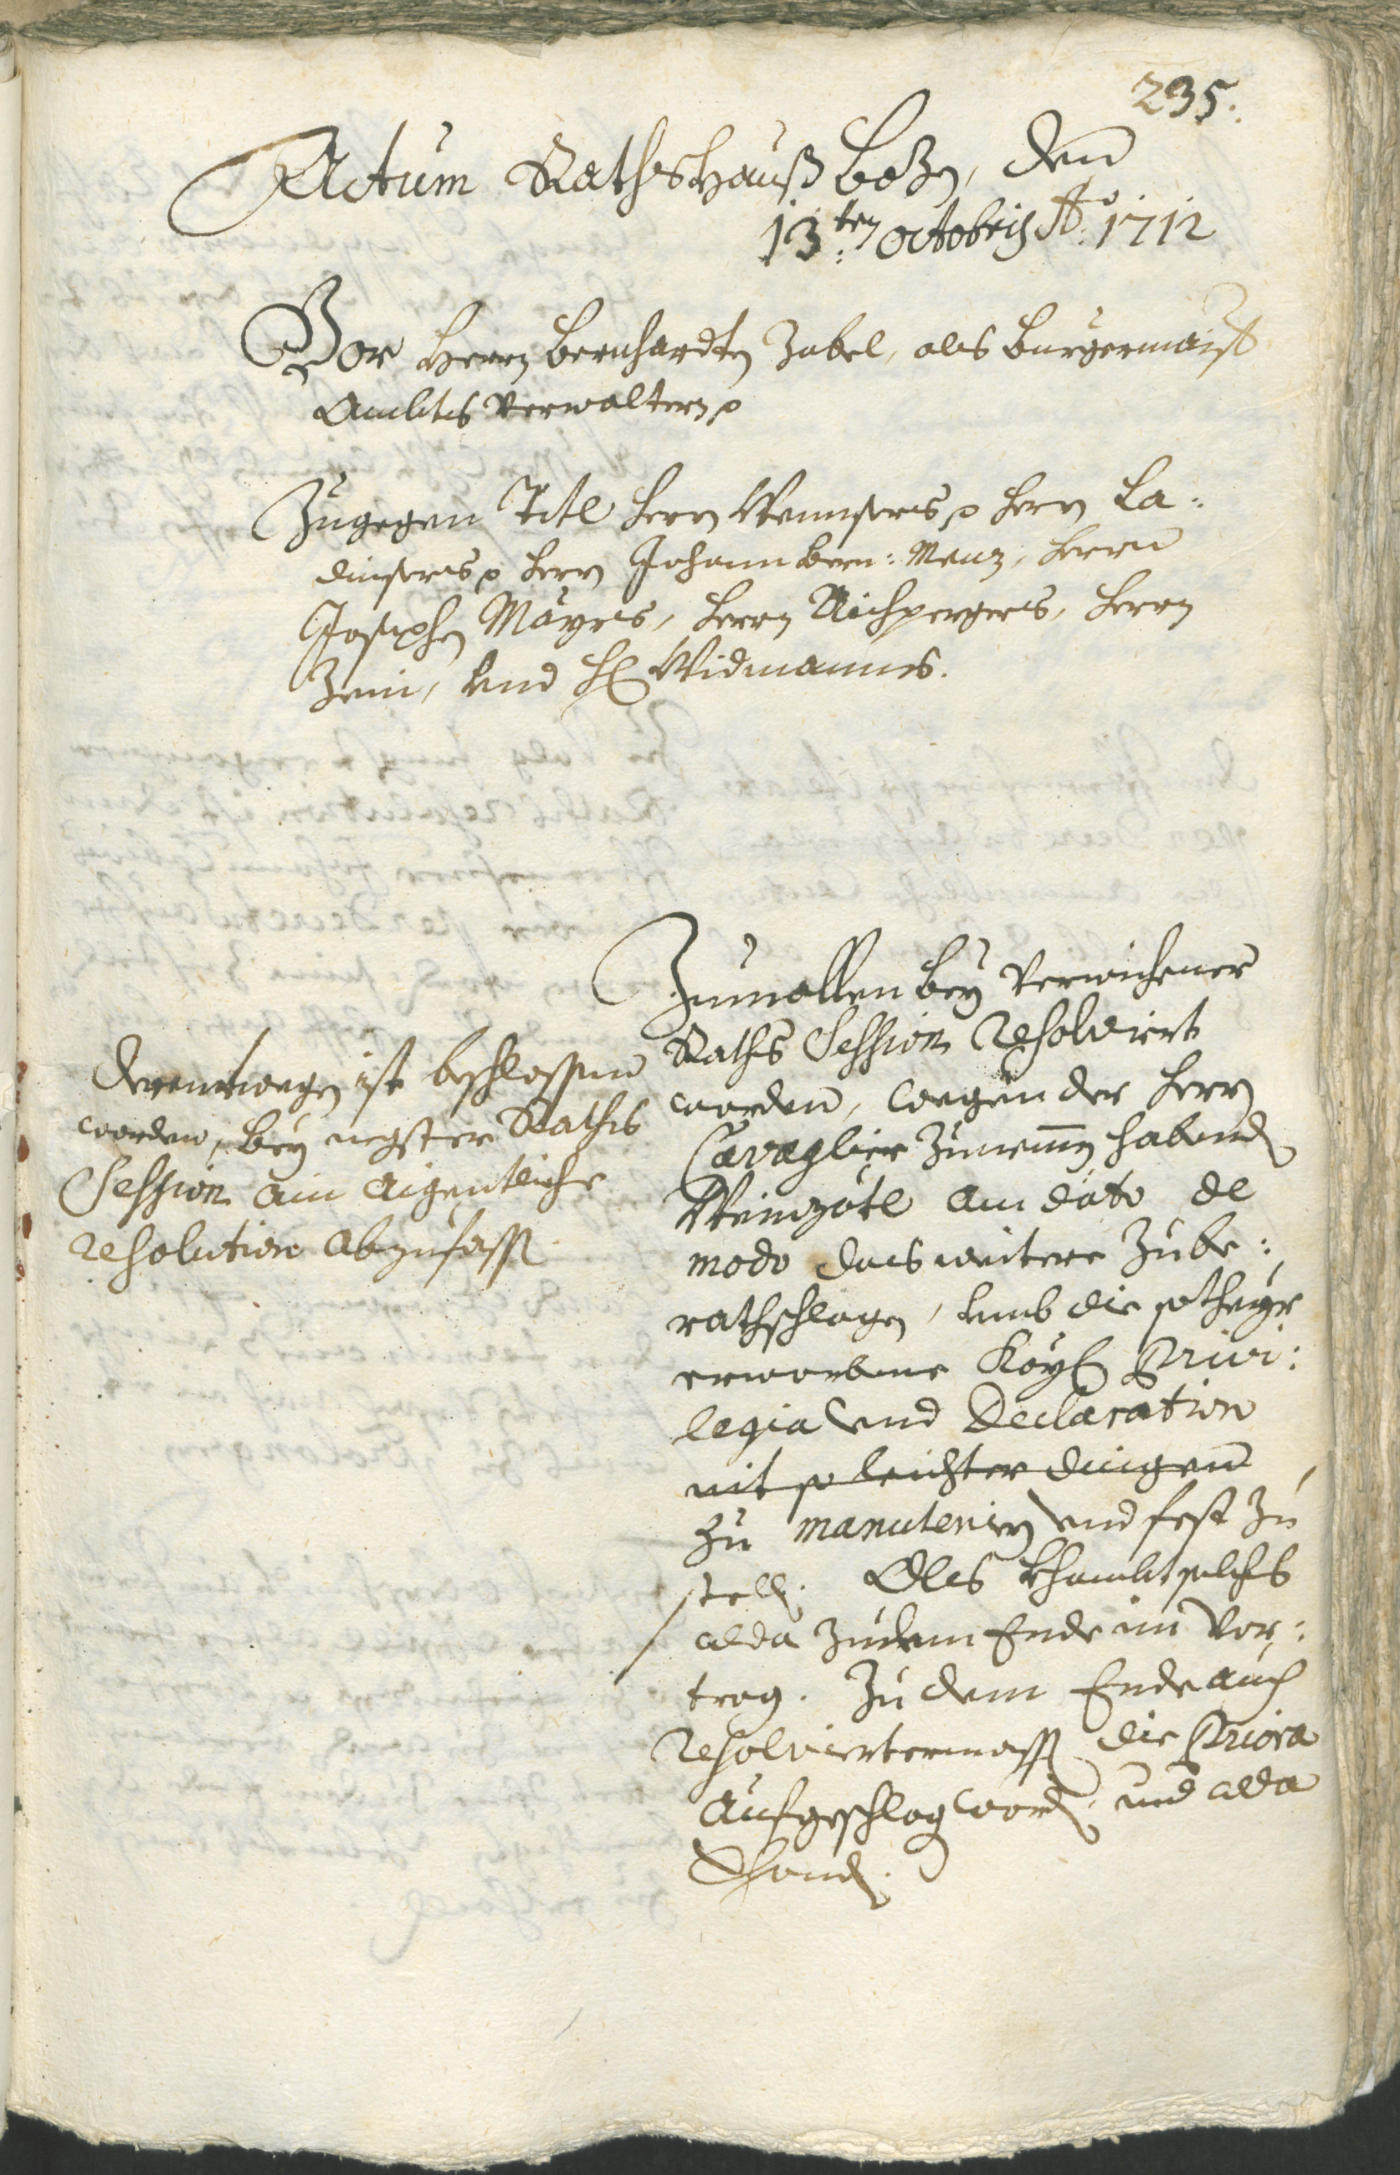 235.
Actum Rathshauß Bozn, den
13.ten Octobris Ao: 1712
Vor Herrn Bernhardten Zobel, als Burgermaist
Ambts Verwaltern
Zugegen Titl Herrn Wennsers Herrn La:
dinsers Herrn Johann Bern: Menz, Herrn
Josephen Mayrs, Herrn Aichpergers, Herrn
Zeni, Und H: Widmanns.
Zumallen bey verwichener
Raths Session resolviert
worden, wegen der Herrn
Cavaglier Zunemen habend
Weinzötl am dato de
modo das weitere Zube:
rathschlagen, umb die so theyr
erworbene Kayl Privi:
legia und Declaration
nit so leichter dingen
zu manutenirn und fest Zu
stelln. Als khombt solches
alda zudem Ende im Vor:
trag. Zu dem Ende auch
resolviertermassn die Priora
aufgeschlagn wordn, und alda
Derentwegen ist beschlossen
worden, bey negster Raths
Session ain aigentliche
resolution abzufassn